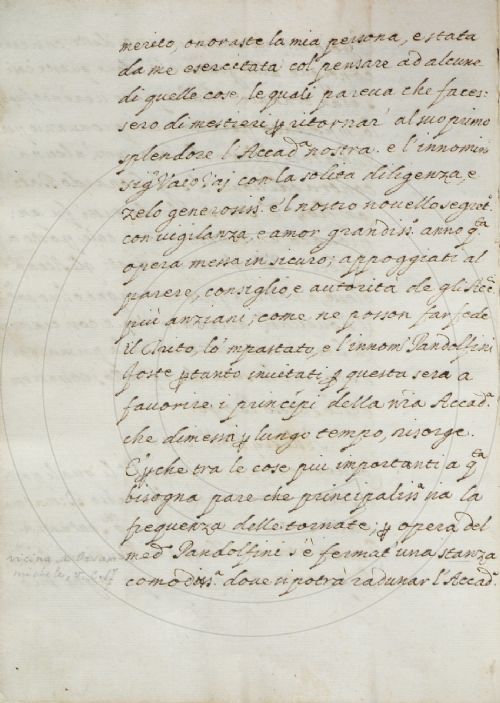 merito, onoraste la mia persona, e stata
da me esercitata col pensare ad alcune
di quelle cose, le quali pareva che faces:
sero di mestieri p ritornar' al suo primo
splendore l'Accad.ª nostra. e l'innomin.
Sig.r con la solita diligenza, e
zelo generosiss.º e'l nostro novello segret.º
con vigilanza, e amor grandiss.º anno q.ta
opera messa in sicuro; appoggiati al
parere, consiglio, e autorità de gli Acc.i
più anziani; come ne posson far fede
il Chiuso, lo 'mpastato, e l'innom. Pandolfini
foste p tanto invitati p questa sera a
favorire i principi della nra Accad.ª
che dimessa p lungo tempo, risorge.
E pche tra le cose più importanti a q.ta
bisogna pare che principaliss.ª sia la
frequenza delle tornate; p opera del
med.º Pandolfini s'è fermat' una stanza
comodiss.ª dove si potrà radunar l'Accad.ª
vicina a